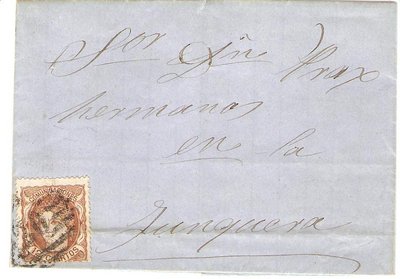 Sor Dn Prax
hermanos
en la
Junquera